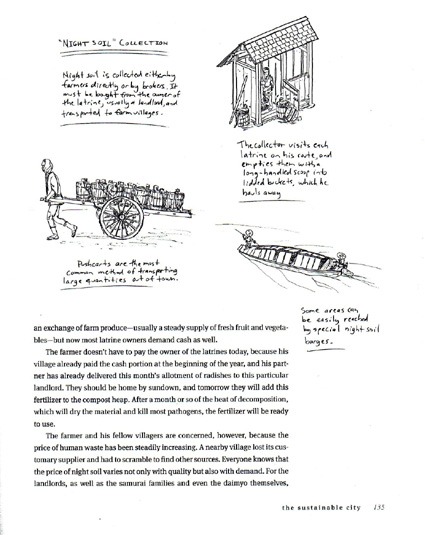 "NIGHT SOIL" COLLECTION
Night soil is collected either by
farmers directly or by brokers. It
must be bought from the owner of
the latrine, usually a landlord, and
transported to farm villages.
The collector visits each
latrine on his route, and
empties them with a
long-handled scoop into
lidded buckets, which he
hauls away
Pushcarts are the most
common method of transporting
large quantities out of town.
Some areas can
be easily reached
by special night soil
barges.
an exchange of farm produce—usually a steady supply of fresh fruit and vegeta-
bles—but now most latrine owners demand cash as well.
The farmer doesn't have to pay the owner of the latrines today, because his
village already paid the cash portion at the beginning of the year, and his part-
ner has already delivered this month's allotment of radishes to this particular
landlord. They should be home by sundown, and tomorrow they will add this
fertilizer to the compost heap. After a month or so of the heat of decomposition,
which will dry the material and kill most pathogens, the fertilizer will be ready
to use.
The farmer and his fellow villagers are concerned, however, because the
price of human waste has been steadily increasing. A nearby village lost its cus-
tomary supplier and had to scramble to find other sources. Everyone knows that
the price of night soil varies not only with quality but also with demand. For the
landlords, as well as the samurai families and even the daimyo themselves,
the sustainable city 155